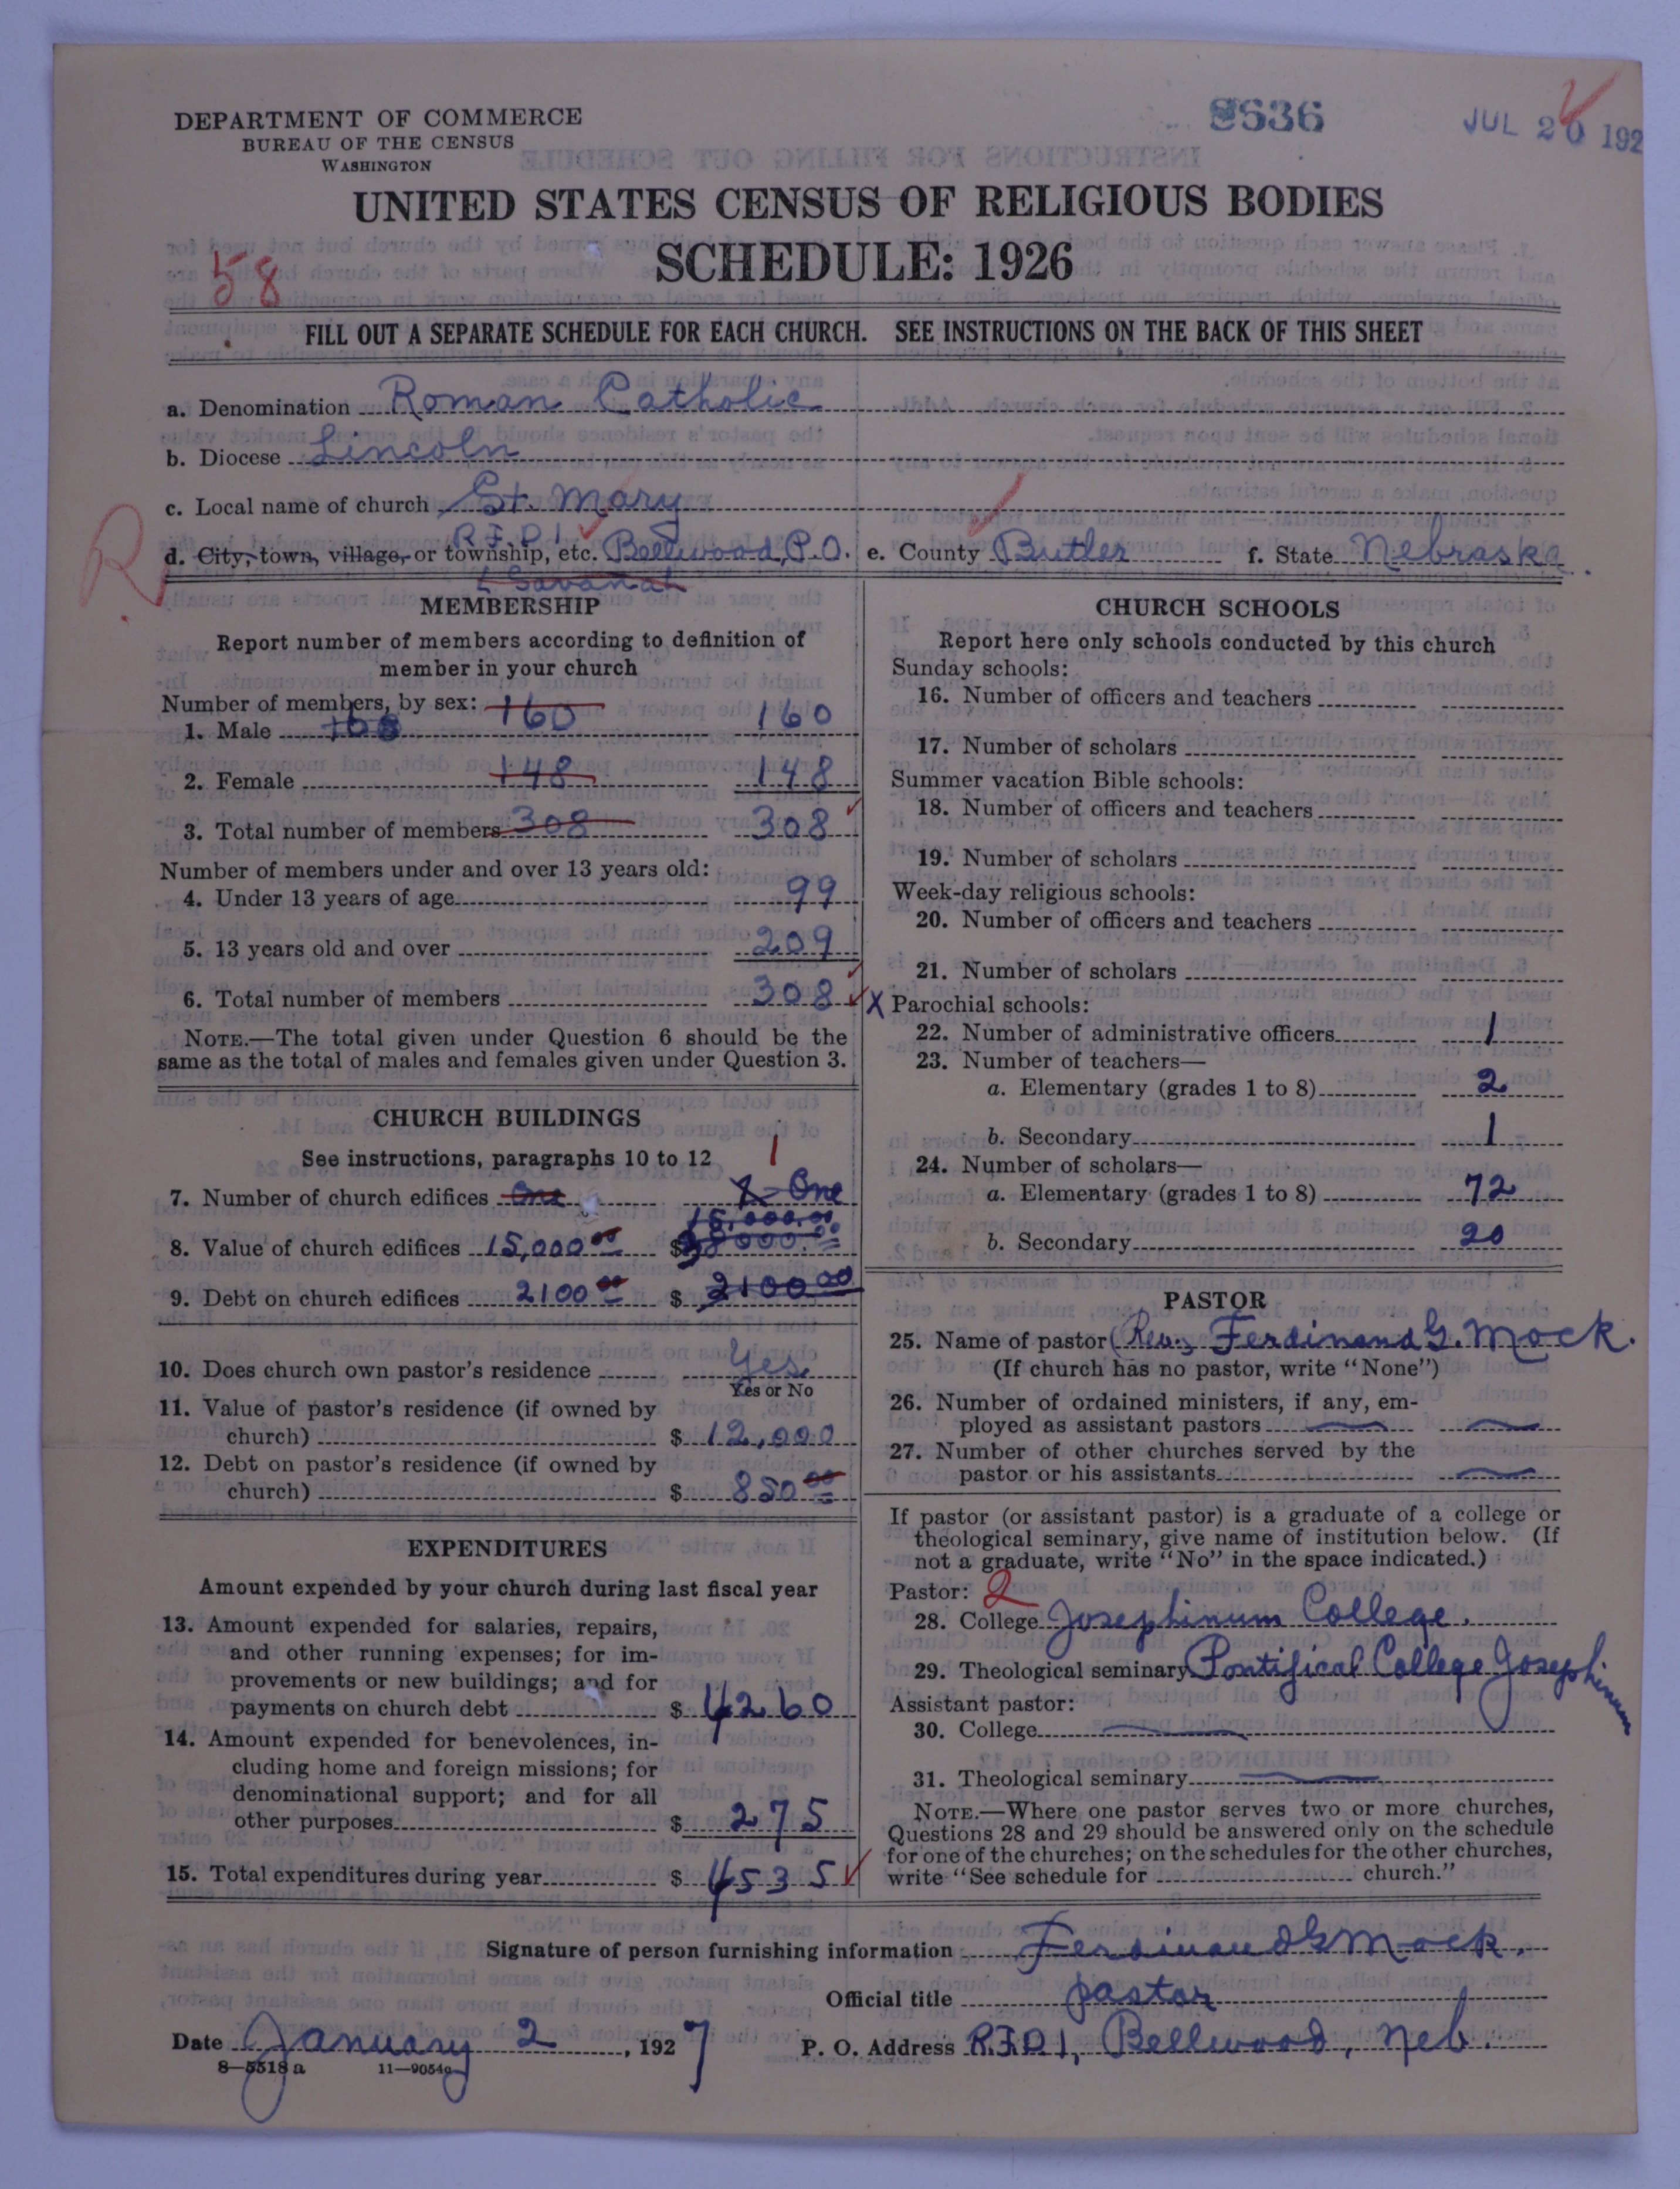 DEPARTMENT OF COMMERCE
BUREAU OF THE CENSUS
WASHINGTON
8636
JUL 20 192
UNITED STATES CENSUS OF RELIGIOUS BODIES
SCHEDULE: 1926
58
FILL OUT A SEPARATE SCHEDULE FOR EACH CHURCH. SEE INSTRUCTIONS ON THE BACK OF THIS SHEET
a. Denomination Roman Catholic
b. Diocese Lincoln
c. Local name of church St. Mary
R.F.D.1
d. City, town, village, or township, etc. Bellwood, P.O. e. County Butler f. State Nebraska.
Savanah
R
MEMBERSHIP
Report number of members according to definition of
member in your church
Number of members, by sex: 160
1. Male 160
2. Female 148 148
3. Total number of members 308 308
Number of members under and over 13 years old:
4. Under 13 years of age 99
5. 13 years old and over 209
6. Total number of members 308
NOTE.—The total given under Question 6 should be the
same as the total of males and females given under Question 3.
CHURCH BUILDINGS
See instructions, paragraphs 10 to 12 1
7. Number of church edifices One One
15,000.00
8. Value of church edifices 15,000 00 $
9. Debt on church edifices 2100 00 $ 2100 00
10. Does church own pastor's residence Yes
Yes or No
11. Value of pastor's residence (if owned by
church) $ 12,000
12. Debt on pastor's residence (if owned by
church) $ 850 00
EXPENDITURES
Amount expended by your church during last fiscal year
13. Amount expended for salaries, repairs,
and other running expenses; for im-
provements or new buildings; and for
payments on church debt $ 4260
14. Amount expended for benevolences, in-
cluding home and foreign missions; for
denominational support; and for all
other purposes $ 275
15. Total expenditures during year $ 4535
CHURCH SCHOOLS
Report here only schools conducted by this church
Sunday schools:
16. Number of officers and teachers
17. Number of scholars
Summer vacation Bible schools:
18. Number of officers and teachers
19. Number of scholars
Week-day religious schools:
20. Number of officers and teachers
21. Number of scholars
X Parochial schools:
22. Number of administrative officers 1
23. Number of teachers—
a. Elementary (grades 1 to 8) 2
b. Secondary 1
24. Number of scholars—
a. Elementary (grades 1 to 8) 72
b. Secondary 20
PASTOR
25. Name of pastor (Rev.) Ferdinand G. Mock.
(If church has no pastor, write "None")
26. Number of ordained ministers, if any, em-
ployed as assistant pastors
27. Number of other churches served by the
pastor or his assistants
If pastor (or assistant pastor) is a graduate of a college or
theological seminary, give name of institution below. (If
not a graduate, write "No" in the space indicated.)
Pastor: 2
28. College Josephinum College.
29. Theological seminary Pontifical College Josephinum
Assistant pastor:
30. College
31. Theological seminary
NOTE.—Where one pastor serves two or more churches,
Questions 28 and 29 should be answered only on the schedule
for one of the churches; on the schedules for the other churches,
write "See schedule for church."
Signature of person furnishing information Ferdinand G Mock.
Official title pastor
Date January 2, 1927 P. O. Address R.F.D.1, Bellwood, Neb.
8—5518 a 11—9054a